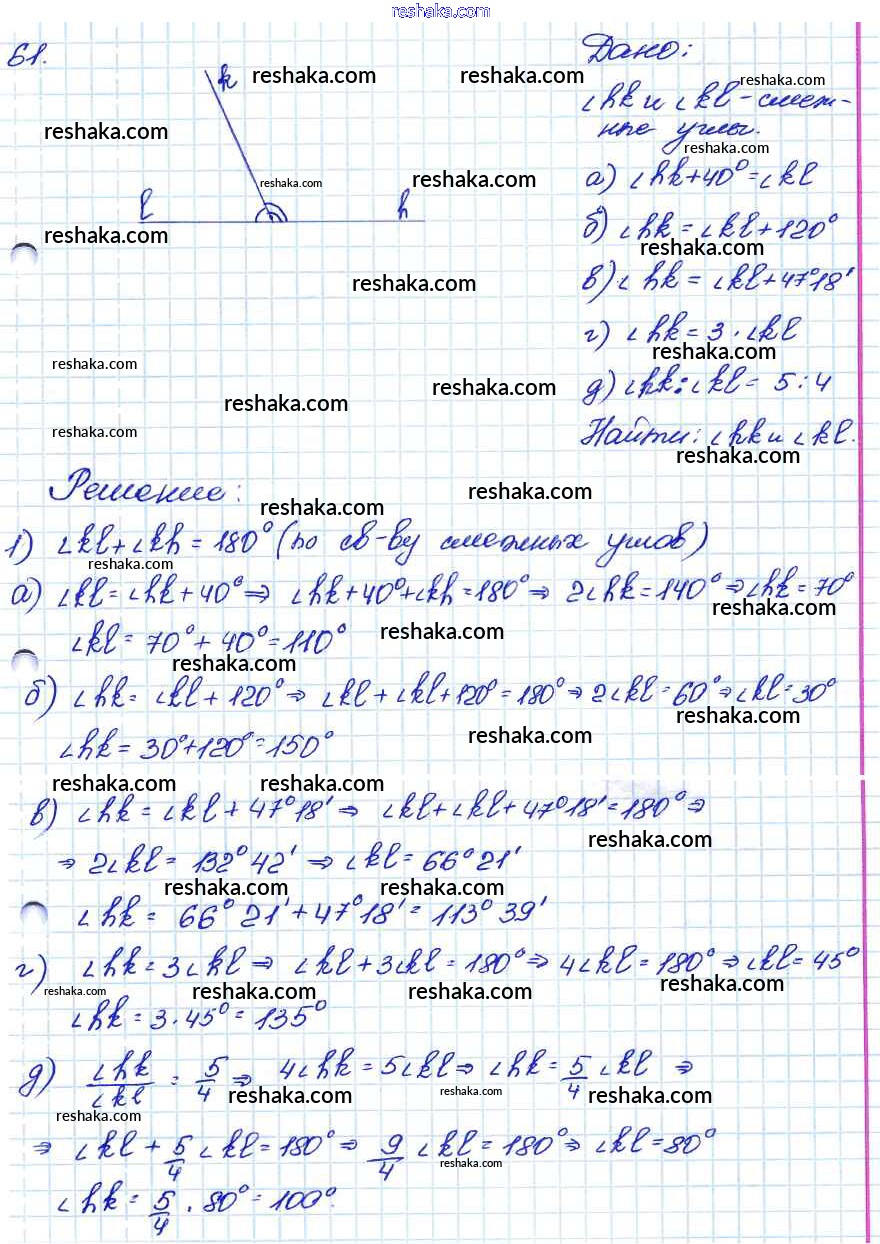 reshaka.com
61.
k
l
h
Дано:
∠hk и ∠kl - смеж-
ные углы.
а) ∠hk+40°=∠kl
б) ∠hk = ∠kl+120°
в) ∠hk = ∠kl+47°18'
г) ∠hk = 3·∠kl
д) ∠hk:∠kl = 5:4
Найти: ∠hk и ∠kl.
Решение:
1) ∠kl+∠kh = 180° (по св-ву смежных углов)
а) ∠kl=∠hk+40° ⇒ ∠hk+40°+∠kh=180° ⇒ 2∠hk=140° ⇒ ∠hk=70°
∠kl = 70°+40°=110°
б) ∠hk = ∠kl+120° ⇒ ∠kl+∠kl+120°=180° ⇒ 2∠kl=60° ⇒ ∠kl=30°
∠hk = 30°+120°=150°
в) ∠hk = ∠kl+47°18' ⇒ ∠kl+∠kl+47°18'=180° ⇒
⇒ 2∠kl = 132°42' ⇒ ∠kl = 66°21'
∠hk = 66°21'+47°18' = 113°39'
г) ∠hk = 3∠hl ⇒ ∠kl+3∠kl = 180° ⇒ 4∠kl=180° ⇒ ∠kl=45°
∠hk = 3·45°=135°
д) ∠hk/∠kl = 5/4 ⇒ 4∠hk = 5∠kl ⇒ ∠hk = 5/4 ∠kl ⇒
⇒ ∠kl + 5/4 ∠kl = 180° ⇒ 9/4 ∠kl = 180° ⇒ ∠kl=80°
∠hk = 5/4 · 80° = 100°.